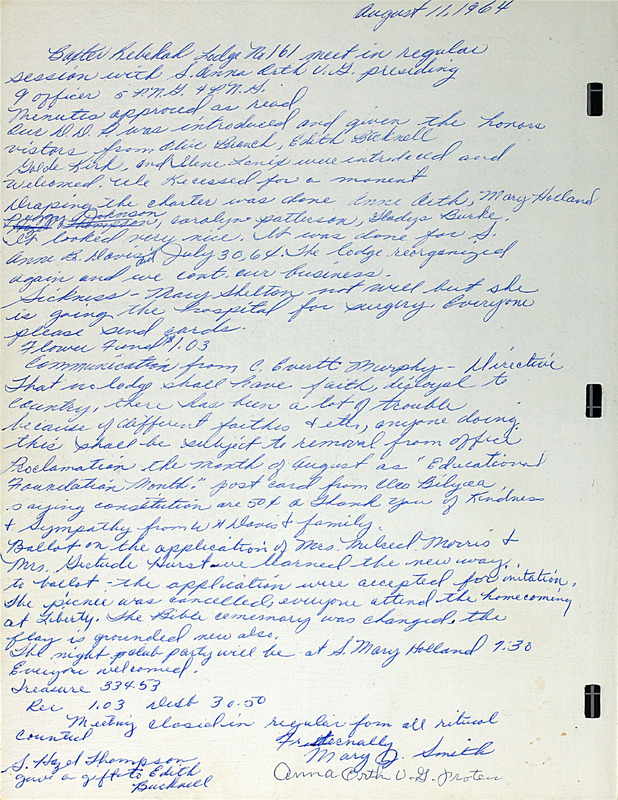 August 11, 1964
Baxter Rebekah Lodge No 161 meet in regular
session with S. Anna Orth V.G. presiding
9 officer 5 P.N.G. 4 P.N.G.
Minutes approved as read
Our D.D.P. was introduced and given the honors
vistors from Olive Branch, Edith Bicknell
Golde Kirk, and Ilene were introduced and
welcomed. We Recessed for a moment
Draping the charter was done Anne Orth, Mary Holland
Johnson
Thompson, Carolyn Patterson, Gladys Burke.
It looked very nice. It was done for S.
Anne B. Davis July 30, 64. The lodge reorganized
again and we cont. our business.
Sickness - Mary Shelton not well but she
is going the hospital for surgery. Everyone
please send cards.
Flower Fund $1.03
Communication from C. Evertt Murphy - Directive
That no lodge shall have faith, disloyal to
country, there has been a lot of trouble
because of different faiths & etc, anyone doing
this shall be subject to removal from office
Proclamation the month of August as "Educational
Foundation Month." post card from Cleo Bilyea,
saying constitution are 50¢. a Thank You of Kindness
& Sympathy from W H Davis & family.
Ballot on the application of Mrs. Milred Morris &
Mrs. Gertude Hurst we learned the new way.
to ballot - the application were accepted for initation.
The picnic was cancelled, everyone attend the homecoming
at Liberty. The Bible cememary was changed, the
flag is grounded new also.
The night party will be at S. Mary Holland 7:30
Everyone welcomed.
Treasure 334.53
Rec 1.03 Disb 30.50
Meeting closed in regular fom all ritual
counted
Fraternally
Mary J. Smith
Anna Orth V.G. Protem
S. Hazel Thompson
gave a gift to Edith
Bucknell